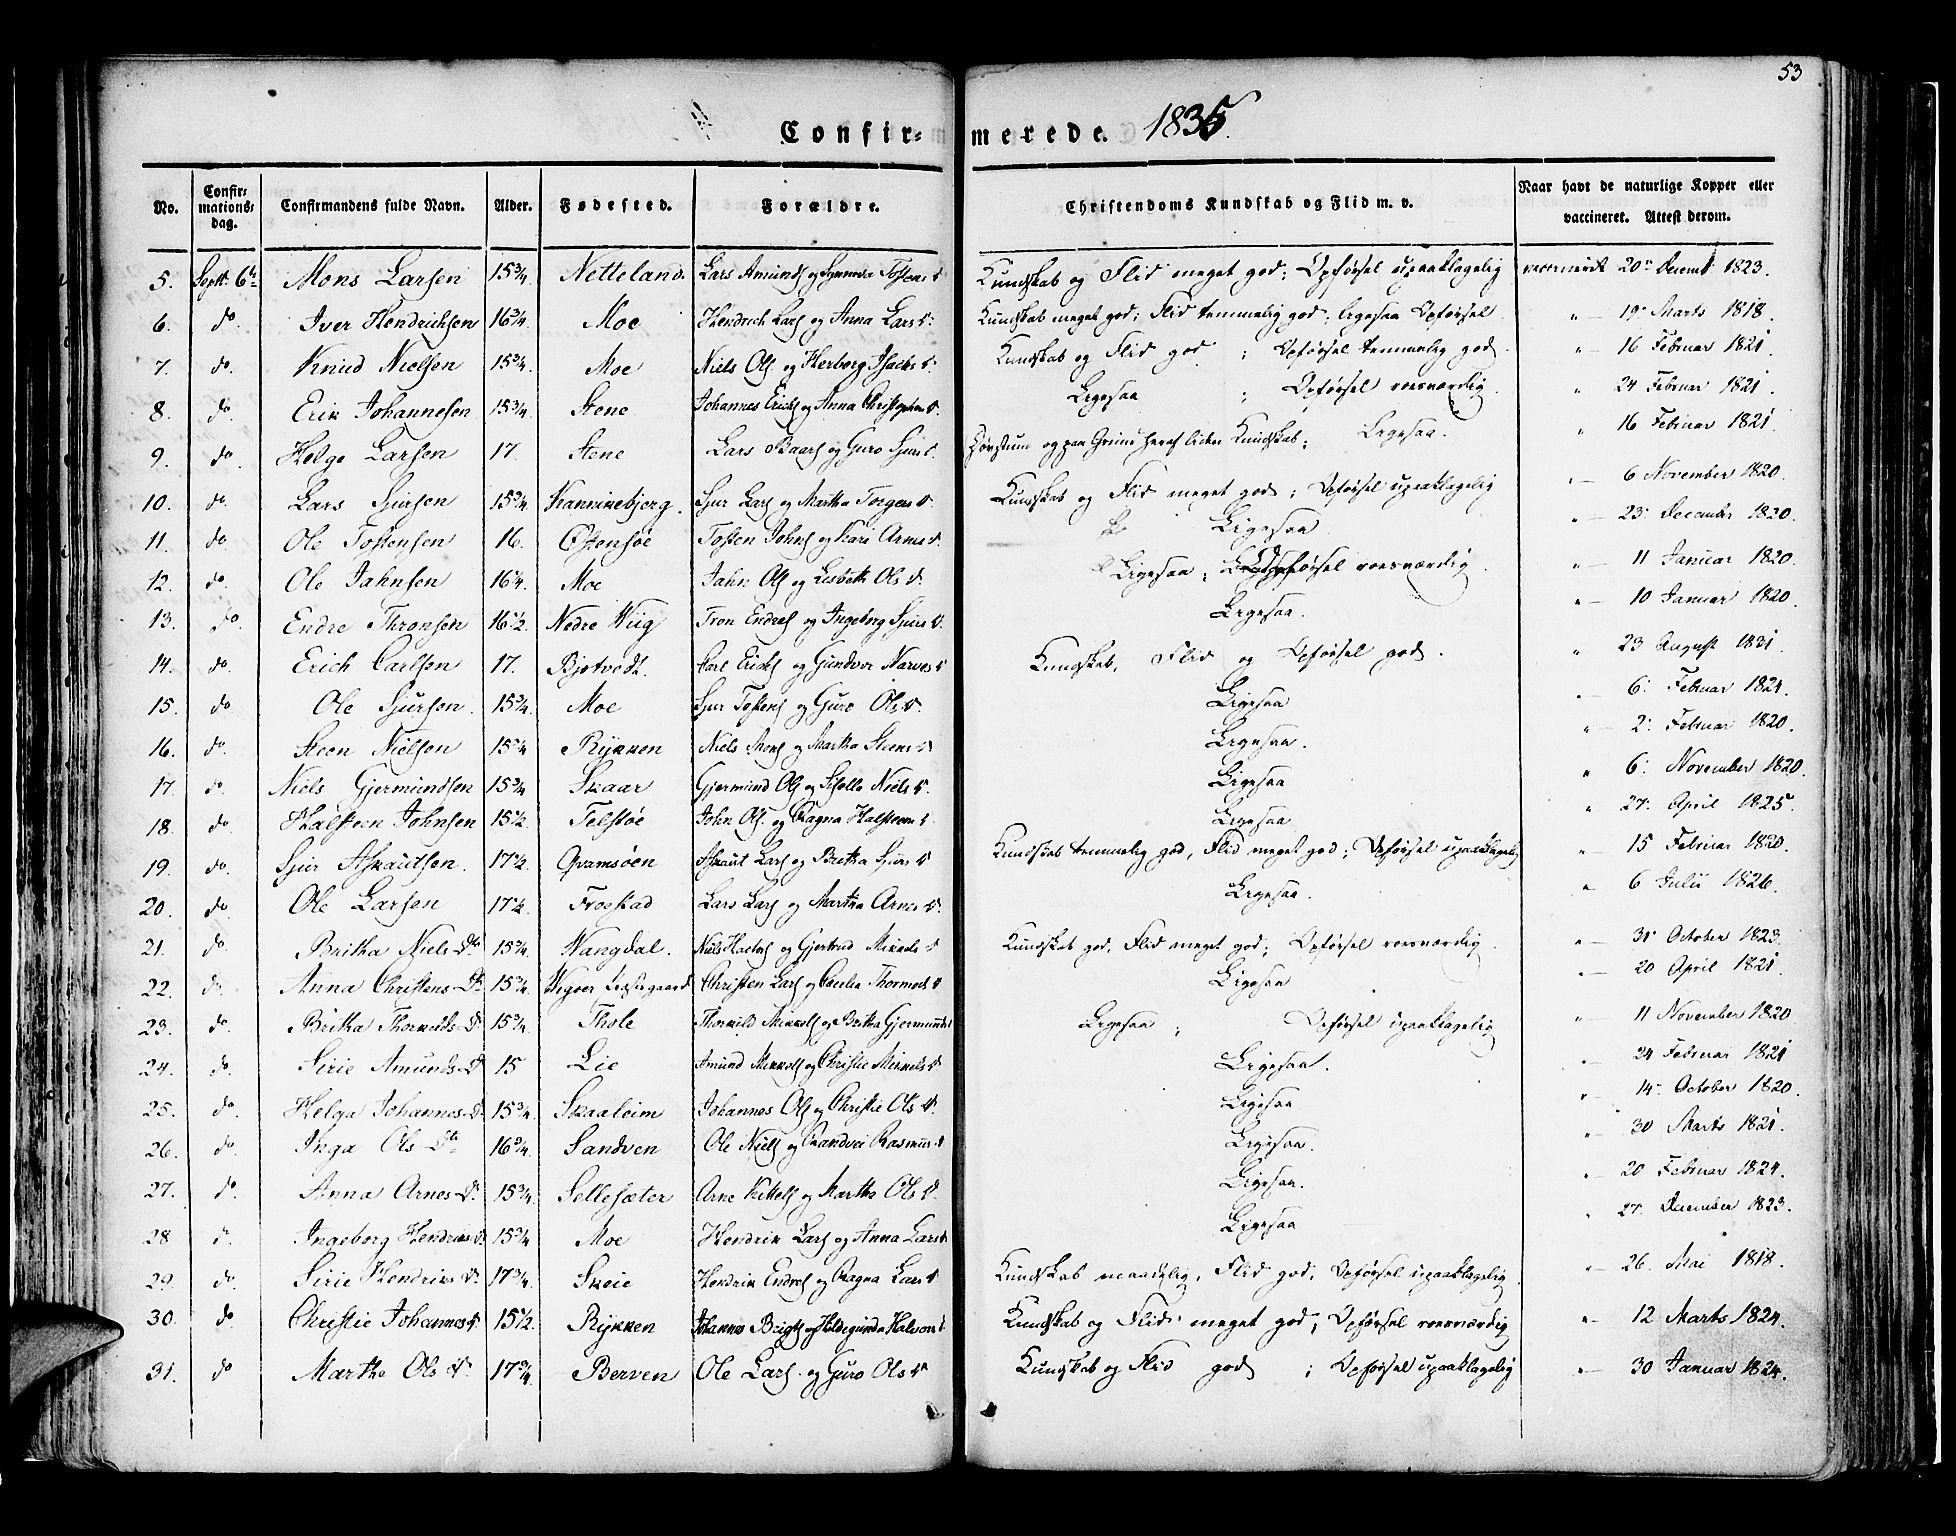 53
Confirmerede. 1835.
No. Confirmationsdag. Confirmandens fulde Navn. Alder. Fødested. Forældre. Christendoms Kundskab og Flid m. v. Naar havt de naturlige Kopper eller vaccineret. Attest derom.
5. Septr. 6te Mons Larsen 15¾ Netteland. Lars Amunds og Synneva Tostens D. Kundskab og Flid meget god; Opførsel upaaklagelig vaccineret 20 Decemb 1823.
6. do. Iver Hendrichsen 16¾. Moe Hendrich Lars og Anna Lars D. Kundskab meget god; Flid temmelig god; ligesaa Opførsel. " 19 Marts 1818.
7. do. Knud Nielsen 15¾. Moe Niels Ols og Herborg Isacks D. Kundskab og Flid god; Opførsel temmelig god. " 16 Februar 1821.
8. do Erik Johannesen 15¾ Stene Johannes Ericks og Anna Christophers D. Ligesaa; Opførsel roesværdig. " 24 Februar 1821.
9. do. Helge Larsen 17. Stene Lars Baars og Guro Sjurs D. og paa Grund heraf liden Kundskab; Ligesaa. " 16 Februar 1821.
10. do. Lars Sjursen 15¾ Kanninebjerg. Sjur Lars og Martha Torgers D. Kundskab og Flid meget god; Opførsel upaaklagelig " 6 November 1820.
11. do. Ole Tostensen 16. Østensøe Tosten Johns og Kari Arnes D. Ligesaa " 23 December 1820.
12. do. Ole Jahnsen 16¼. Moe Jahn Ols og Lisbeth Ols D. Ligesaa; Opførsel roesværdig. " 11 Januar 1820.
13. do. Endre Thronsen 16½. Nedre Wiig Tron Endres og Ingeborg Sjurs D. Ligesaa. " 10 Januar 1820.
14. do Erich Carlsen 17. Bjotvedt. Carl Ericks og Gundvor Narves D Kundskab, Flid og Opførsel god. " 23 August 1831.
15. do Ole Sjursen. 15¾. Moe Sjur Tostens og Guro Ols D. Ligesaa 6 Februar 1821.
16. do. Steen Nielsen 15¾ Rykken Niels Mons og Martha Steens D Ligesaa. " 2 Februar 1820.
17. do. Niels Gjermundsen 15¾ Skaar Gjermund Ols og Niels D. Ligesaa " 6 November 1820.
18. do. Halsteen Johnsen 15½ Telstøe John Ols. og Ragna Halsteens D. Ligesaa " 27 April 1825.
19. do. Sjur Askautsen. 17½. Qvamsøen Askaut Lars og Britha Sjurs D Kundskab temmelig god, Flid meget god; Opførsel upaaklagelig " 15 Februar 1820.
20. do Ole Larsen 17½. Froestad Lars Lars og Martha Arnes D. Ligesaa. " 6 Julii 1826.
21. do. Britha Niels Dtr 15¾. Wangdal. Niels og Gjertrud Mikkels D Kundskab god, Flid meget god; Opførsel roesværdig. " 31 October 1823.
22. do. Anna Christens D. 15¾. Wigøer Præstegaard Christen Lars og Cecilia Thormods D Ligesaa " 20 April 1821.
23. do. Britha Thorkilds D. 15¾. Thole Thorkild Mikkels og Britha Gjermunds Ligesaa; Opførsel upaaklagelig " 11 November 1820
24. do. Sirie Amunds D 15 Lie Amund Mikkels og Christie Mikkels D Ligesaa. 24 Februar 1821
25. do. Helga Johannes D. 15¾. Skaaleim Johannes Ols og Christie Ols D. Ligesaa " 14 October 1820.
26. do. Inga Ols Dtr 16¾. Sandven Ole Niels og Randvei Rasmus D Ligesaa. " 30 Marts 1821.
27. do. Anna Arnes D. 15¾. Sellesæter Arne Kittels og Martha Ols D. Ligesaa. " 20 Februar 1824.
28 do. Ingeborg Hendriks D. 15¾. Moe Hendrik Lars og Anna Lars D Ligesaa " 27 December 1823.
29. do. Sirie Hendriks D. 17¾. Skeie Hendrik Endres og Ragna Lars D Kundskab maadelig, Flid god, Opførsel upaaklagelig. " 26 Mai 1818.
30. do Christie Johannes D. 15½. Rykken Johannes Brigts og Hildegunda Halvors D. Kundskab og Flid meget god; Opførsel roesværdig " 12 Marts 1824.
31. do Martha Ols D. 17¾. Berven Ole Lars og Guro Ols D Kundskab og Flid god; Opførsel upaaklagelig " 30 Januar 1824.